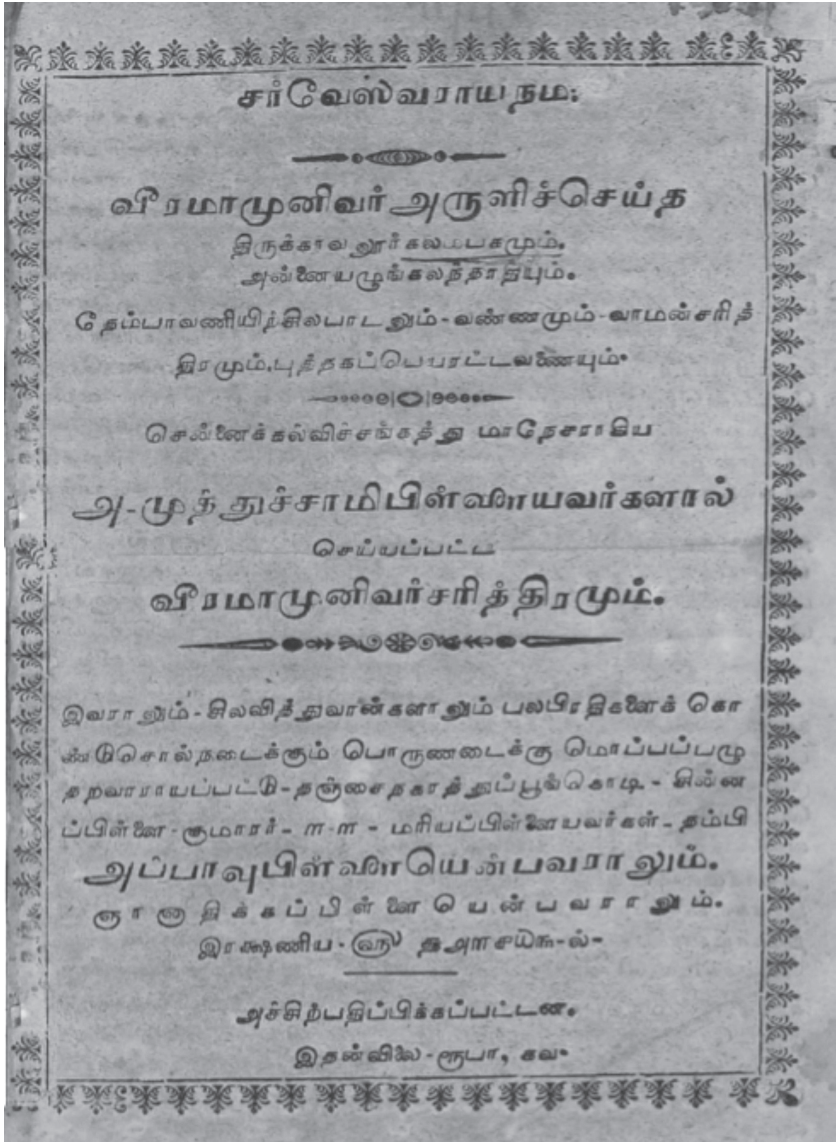 சர்வேஸ்வராயநம:
வீரமாமுனிவர் அருளிச்செய்த
திருக்காவலூர்கலமபகமும்.
அன்னையழுங்கலந்தாதியும்.
தேம்பாவணியிற்சிலபாடலும்-வண்ணமும்-வாமன்சரித்
திரமும்.புத்தகப்பெயரட்டவணையும்.
சென்னைக்கல்விச்சங்கத்து மாநேசராகிய
அ-முத்துச்சாமிபிள்ளையவர்களால்
செய்யப்பட்ட
வீரமாமுனிவர்சரித்திரமும்.
இவராலும்-சிலவித்துவான்களாலும் பலபிரதிகளைக் கொ
ண்டுசொல்நடைக்கும் பொருணடைக்கு மொப்பப்பழு
தறவாராயப்பட்டு-தஞ்சைநகரத்துப்பூங்கொடி-சின்ன
ப்பிள்ளை-குமாரர்-ஈ-ள-மரியப்பிள்ளையவர்கள்-தம்பி
அப்பாவுபிள்ளையென்பவராலும்.
ஞானாதிக்கப்பிள்ளை யென்பவராலும்.
இரக்ஷணிய-௵
அச்சிற்பதிப்பிக்கப்பட்டன.
இதன்விலை-ரூபா, கவ.